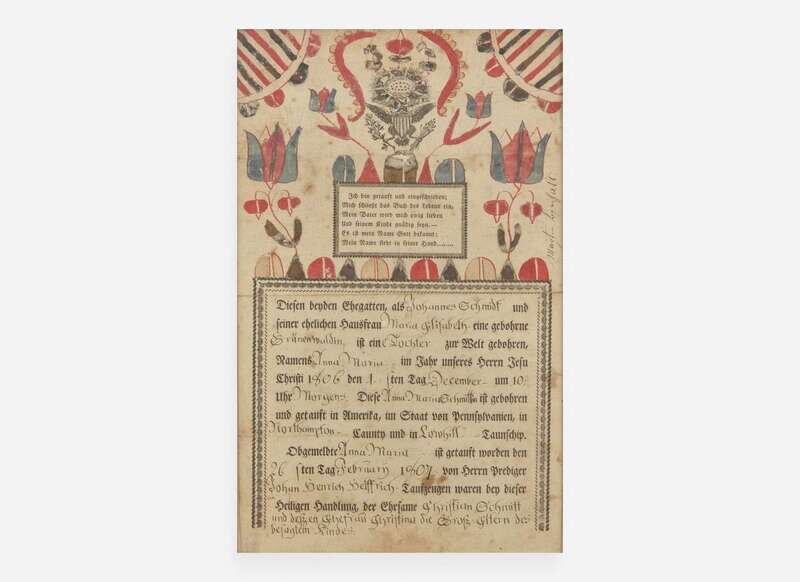 Ich bin getauft und eingeschrieben;
Mich schließt das Buch des Lebens ein,
Mein Vater wird mich ewig lieben
Und seinem Kinde gnädig seyn.—
Es ist mein Name Gott bekannt;
Mein Name steht in seiner Hand........
Martin
Diesen beyden Ehegatten, als Johannes Schmidt und
seiner ehelichen Hausfrau Maria Elisabeth eine gebohrne
Grünewaldin ist ein e Tochter zur Welt gebohren,
Namens Anna Maria im Jahr unseres Herrn Jesu
Christi 1806 den 1 sten Tag December um 10
Uhr Morgens Diese Anna Maria Schmidtin ist gebohren
und getauft in Amerika, im Staat von Pennsylvanien, in
Northampton Caunty und in Lowhill Taunschip.
Obgemeldte Anna Maria ist getauft worden den
26 sten Tag February 1807 von Herrn Prediger
Johan Henrich Helffrich Taufzeugen waren bey dieser
Heiligen Handlung, der Ehrsame Christian Schmitt
und deßen Ehefrau Christina die Groß-Eltern des
besagtem Kindes